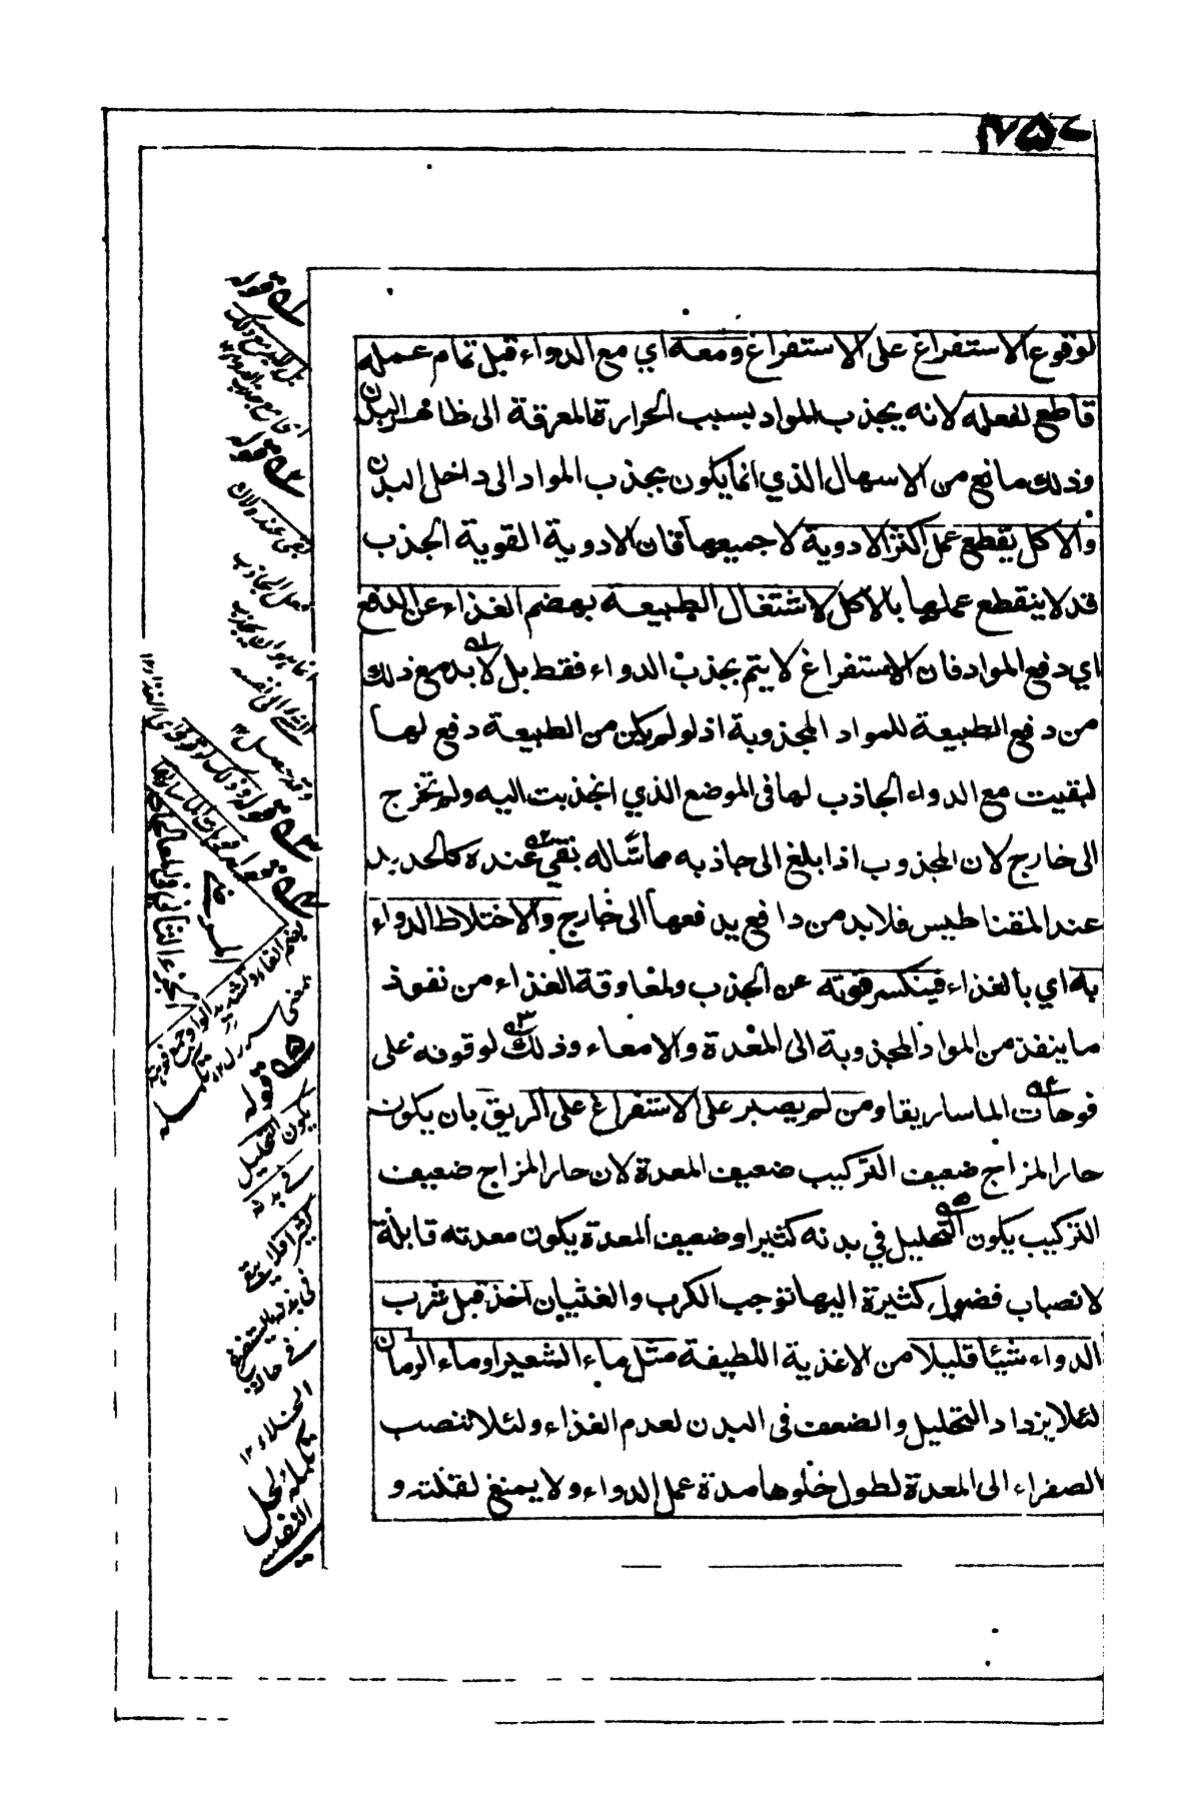 لوقوع الاستفراغ على الاستفراغ ومعه اي مع الدواء قبل تمام عمله
قاطع لفعله لانه يجذب المواد بسبب الحرارة المعرقة الى ظاهر البدن
وذلك مانع من الاسهال الذي انما يكون بجذب المواد الى داخل البدن
والاكل يقطع عمل اكثر الادوية لا جميعها فان الادوية القوية الجذب
قد لا ينقطع عملها بالاكل لاشتغال الطبيعة بهضم الغذاء عن الدفع
اي دفع المواد فان الاستفراغ لا يتم بجذب الدواء فقط بل لا بد مع ذلك
من دفع الطبيعة للمواد المجذوبة اذ لو لم يكن من الطبيعة دفع لها
لبقيت مع الدواء الجاذب لها في الموضع الذي انجذبت اليه ولم تخرج
الى خارج لان المجذوب اذا بلغ الى جاذبه مماسّا له بقي عنده كالحديد
عند المقناطيس فلا بد من دافع يدفعها الى خارج والاختلاط الدواء
به اي بالغذاء فينكسر قوته عن الجذب ولمعاوقة الغذاء من نفوذ
ما ينفذ من المواد المجذوبة الى المعدة والامعاء وذلك لوقوفه على
فوحات الماساريقا ومن لم يصبر على الاستفراغ على الريق بان يكون
حار المزاج ضعيف التركيب ضعيف المعدة لان حار المزاج ضعيف
التركيب يكون التحليل في بدنه كثيرا وضعيف المعدة يكون معدته قابلة
لانصباب فضول كثيرة اليها توجب الكرب والغثيان اخذ قبل شرب
الدواء شيئا قليلا من الاغذية اللطيفة مثل ماء الشعير او ماء الرمان
لئلا يزداد التحليل والضعف في البدن لعدم الغذاء ولئلا تنصب
الصفراء الى المعدة لطول خلوها مدة عمل الدواء ولا يمنع لقلته و
قوله
قوله
بقي عنده
الى نفسه
قوله
وذلك لوقوفه اي الغذاء ١٢
قوله فوحات الماساريقا
قوله
يكون التحليل
في بدنه
كثيرا
الخلاء ١٢
تكملة لحل
النفيسي